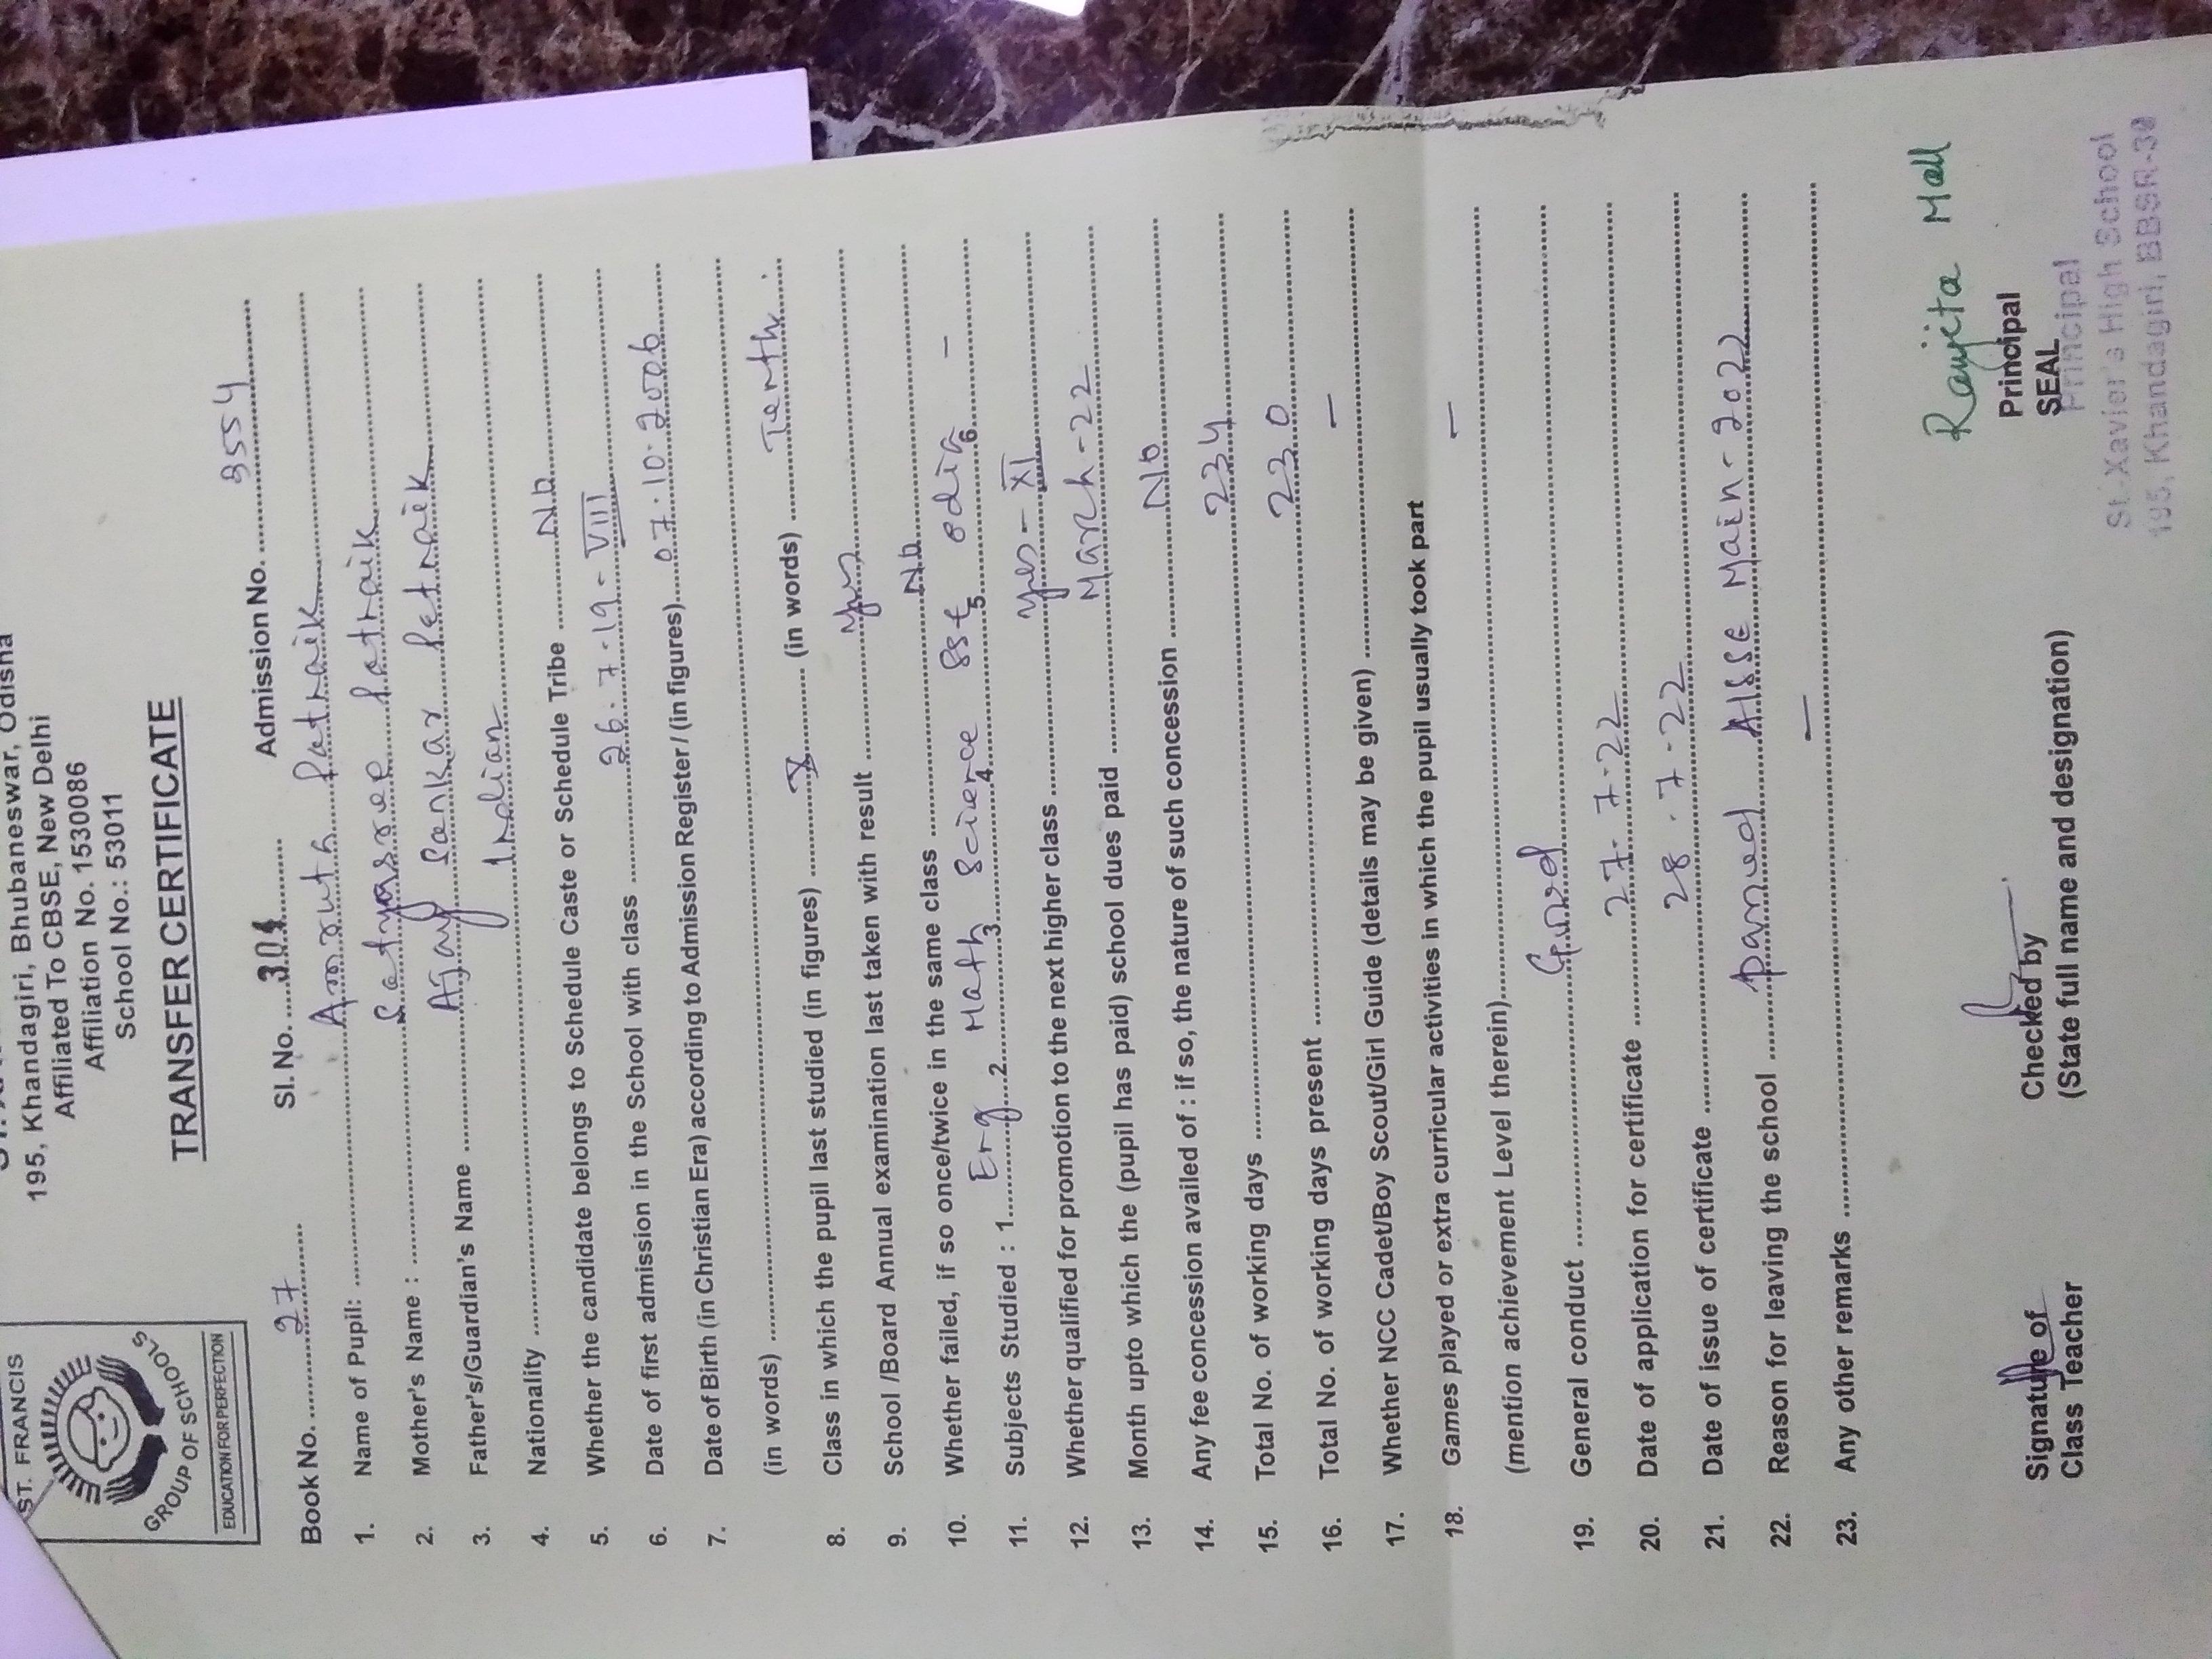 ST. FRANCIS
GROUP OF SCHOOLS
EDUCATION FOR PERFECTION
195, Khandagiri, Bhubaneswar, Odisha
Affiliated To CBSE, New Delhi
Affiliation No. 1530086
School No.: 53011
TRANSFER CERTIFICATE
Book No. 27 Sl. No. 304 Admission No. 3554
1. Name of Pupil: Patnaik
2. Mother's Name : Satyasree Patnaik
3. Father's/Guardian's Name Ajay Sankar Patnaik
4. Nationality Indian
5. Whether the candidate belongs to Schedule Caste or Schedule Tribe No
6. Date of first admission in the School with class 26.7.19-VIII
7. Date of Birth (in Christian Era) according to Admission Register / (in figures) 07.10.2006
(in words)
8. Class in which the pupil last studied (in figures) X (in words) Tenth.
9. School /Board Annual examination last taken with result yes
10. Whether failed, if so once/twice in the same class No
11. Subjects Studied : 1 Eng 2 Math 3 Science 4 SSt 5 Odia 6 –
12. Whether qualified for promotion to the next higher class yes - XI
13. Month upto which the (pupil has paid) school dues paid March-22
14. Any fee concession availed of : if so, the nature of such concession No
15. Total No. of working days 234
16. Total No. of working days present 230
17. Whether NCC Cadet/Boy Scout/Girl Guide (details may be given) –
18. Games played or extra curricular activities in which the pupil usually took part
(mention achievement Level therein) –
19. General conduct Good
20. Date of application for certificate 27-7-22
21. Date of issue of certificate 28-7-22
22. Reason for leaving the school passed AISSE Main-2022
23. Any other remarks –
Ranjita Mall
Signature of
Class Teacher
Checked by
(State full name and designation)
Principal
SEAL
Principal
St. Xavier's High School
195, Khandagiri, BBSR-30